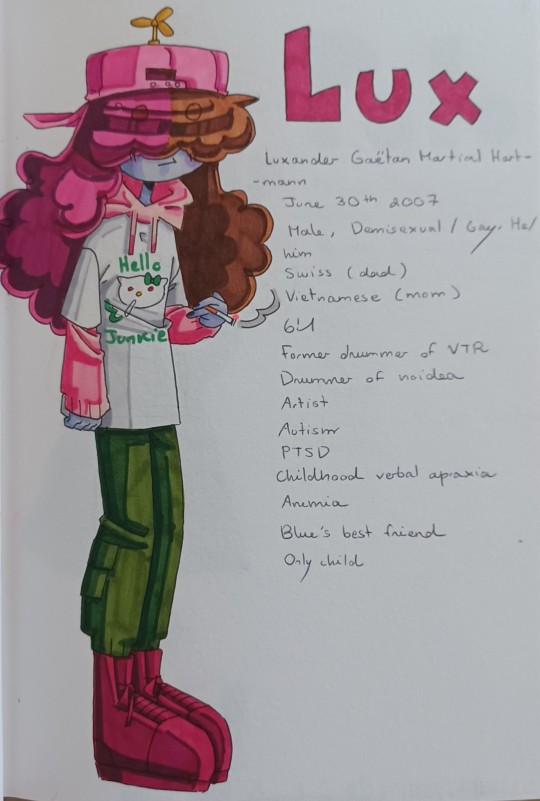 Lux
Luxander Gaëtan Martial Hart-
-mann
June 30th 2007
Male, Demisexual / Gay, He/
him
Swiss (dad)
Vietnamese (mom)
6'1
Former drummer of VTR
Drummer of noidea
Artist
Autism
PTSD
Childhood verbal apraxia
Anemia
Blue's best friend
Only child
Hello
Junkie